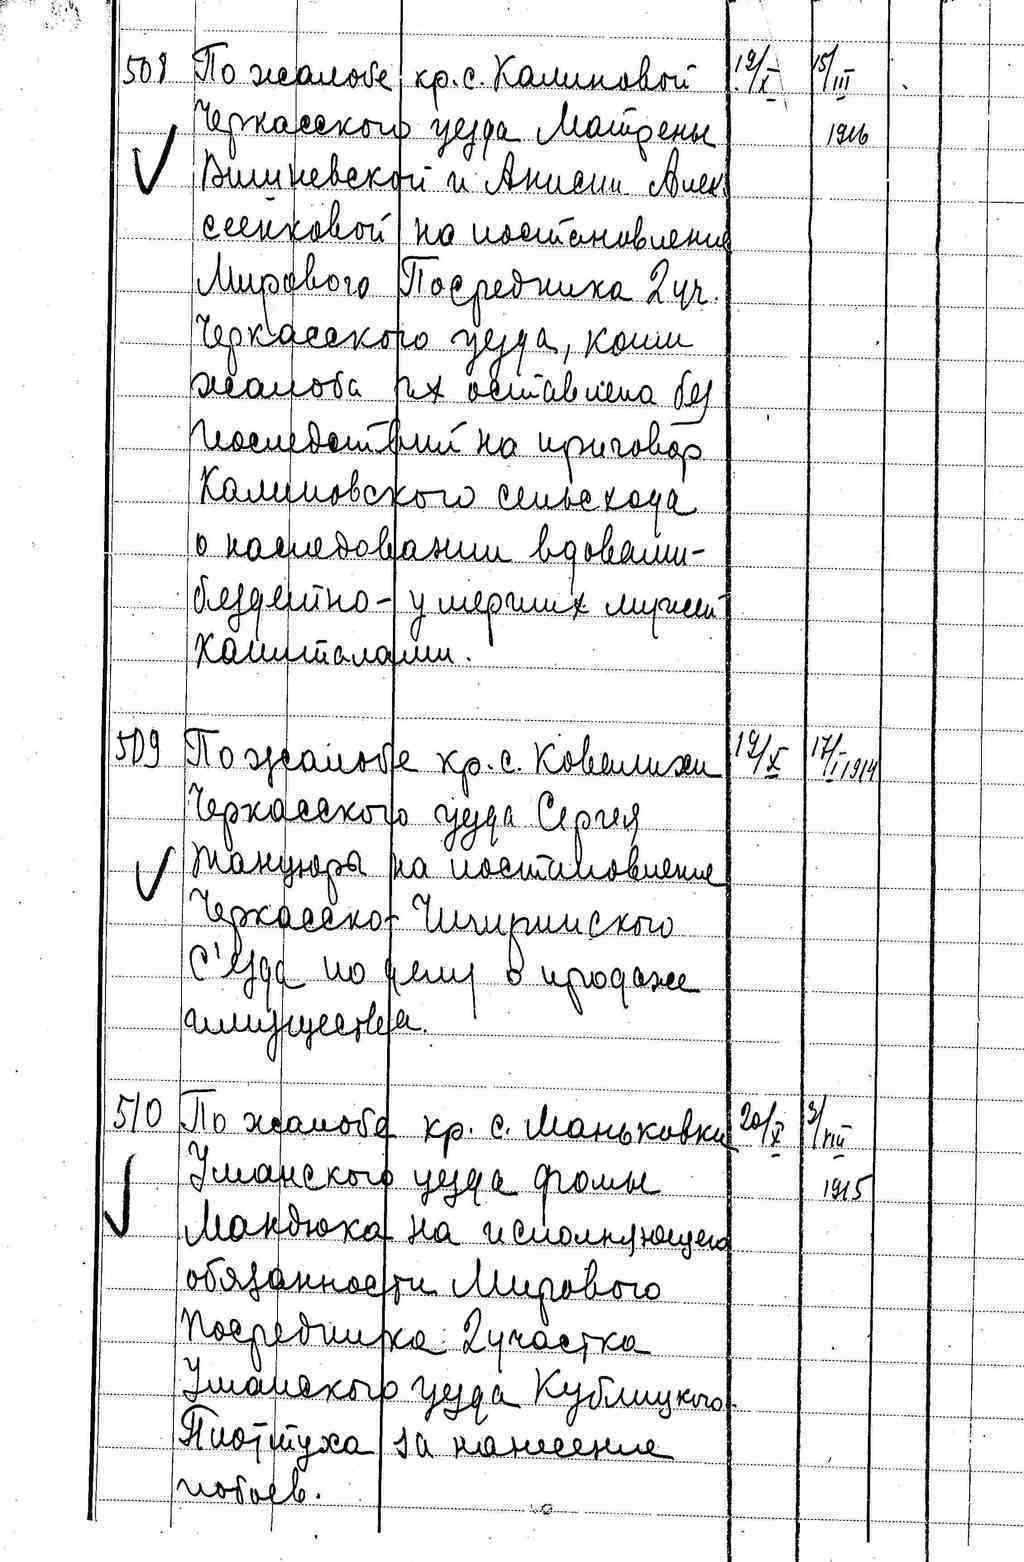 508 По жалобе кр. с. Калиновой 19/X 15/III
Черкасского уезда Матрены 1916
Вишневской и Анисии Алек-
сеенковой на постановление
Мирового Посредника 2 уч.
Черкасского уезда, коим
жалоба их оставлена без
последствий на приговор
Калиновского сельсхода
о наследовании вдовами-
бездетно-умерших мужей
капиталами.
509 По жалобе кр. с. Ковалихи 19/X 17/I 1914
Черкасского уезда Сергея
на постановление
Черкасско-Чигиринского
С'езда по делу о продаже
имущества.
510 По жалобе кр. с. Маньковки 20/X 3/VIII
Уманского уезда Фомы 1915
Мандюка на исполняющего
обязанности Мирового
Посредника 2 участка
Уманского уезда Кублицкого-
Пиоттуха за нанесение
побоев.